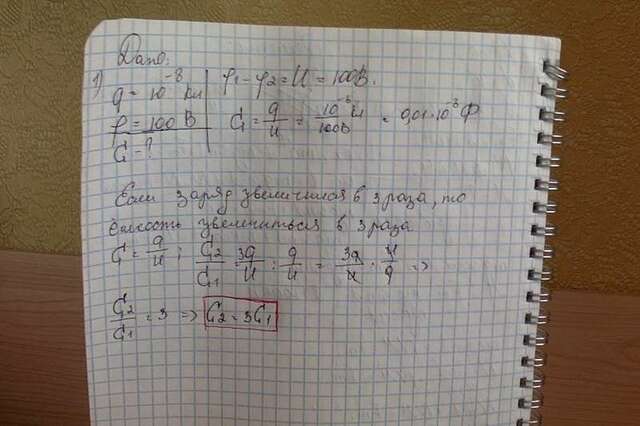 Дано:
1) q = 10⁻⁸ Кл
φ₁ - φ₂ = U = 100В.
φ = 100 В
C = q/U = 10⁻⁸ Кл/100В = 0,01·10⁻⁸ Ф
C - ?
Если заряд увеличился в 3 раза, то
ёмкость увеличиться в 3 раза
C = q/U ; C₂/C₁ = 3q/U : q/U = 3q/U · U/q =>
C₂/C₁ = 3 => C₂ = 3C₁